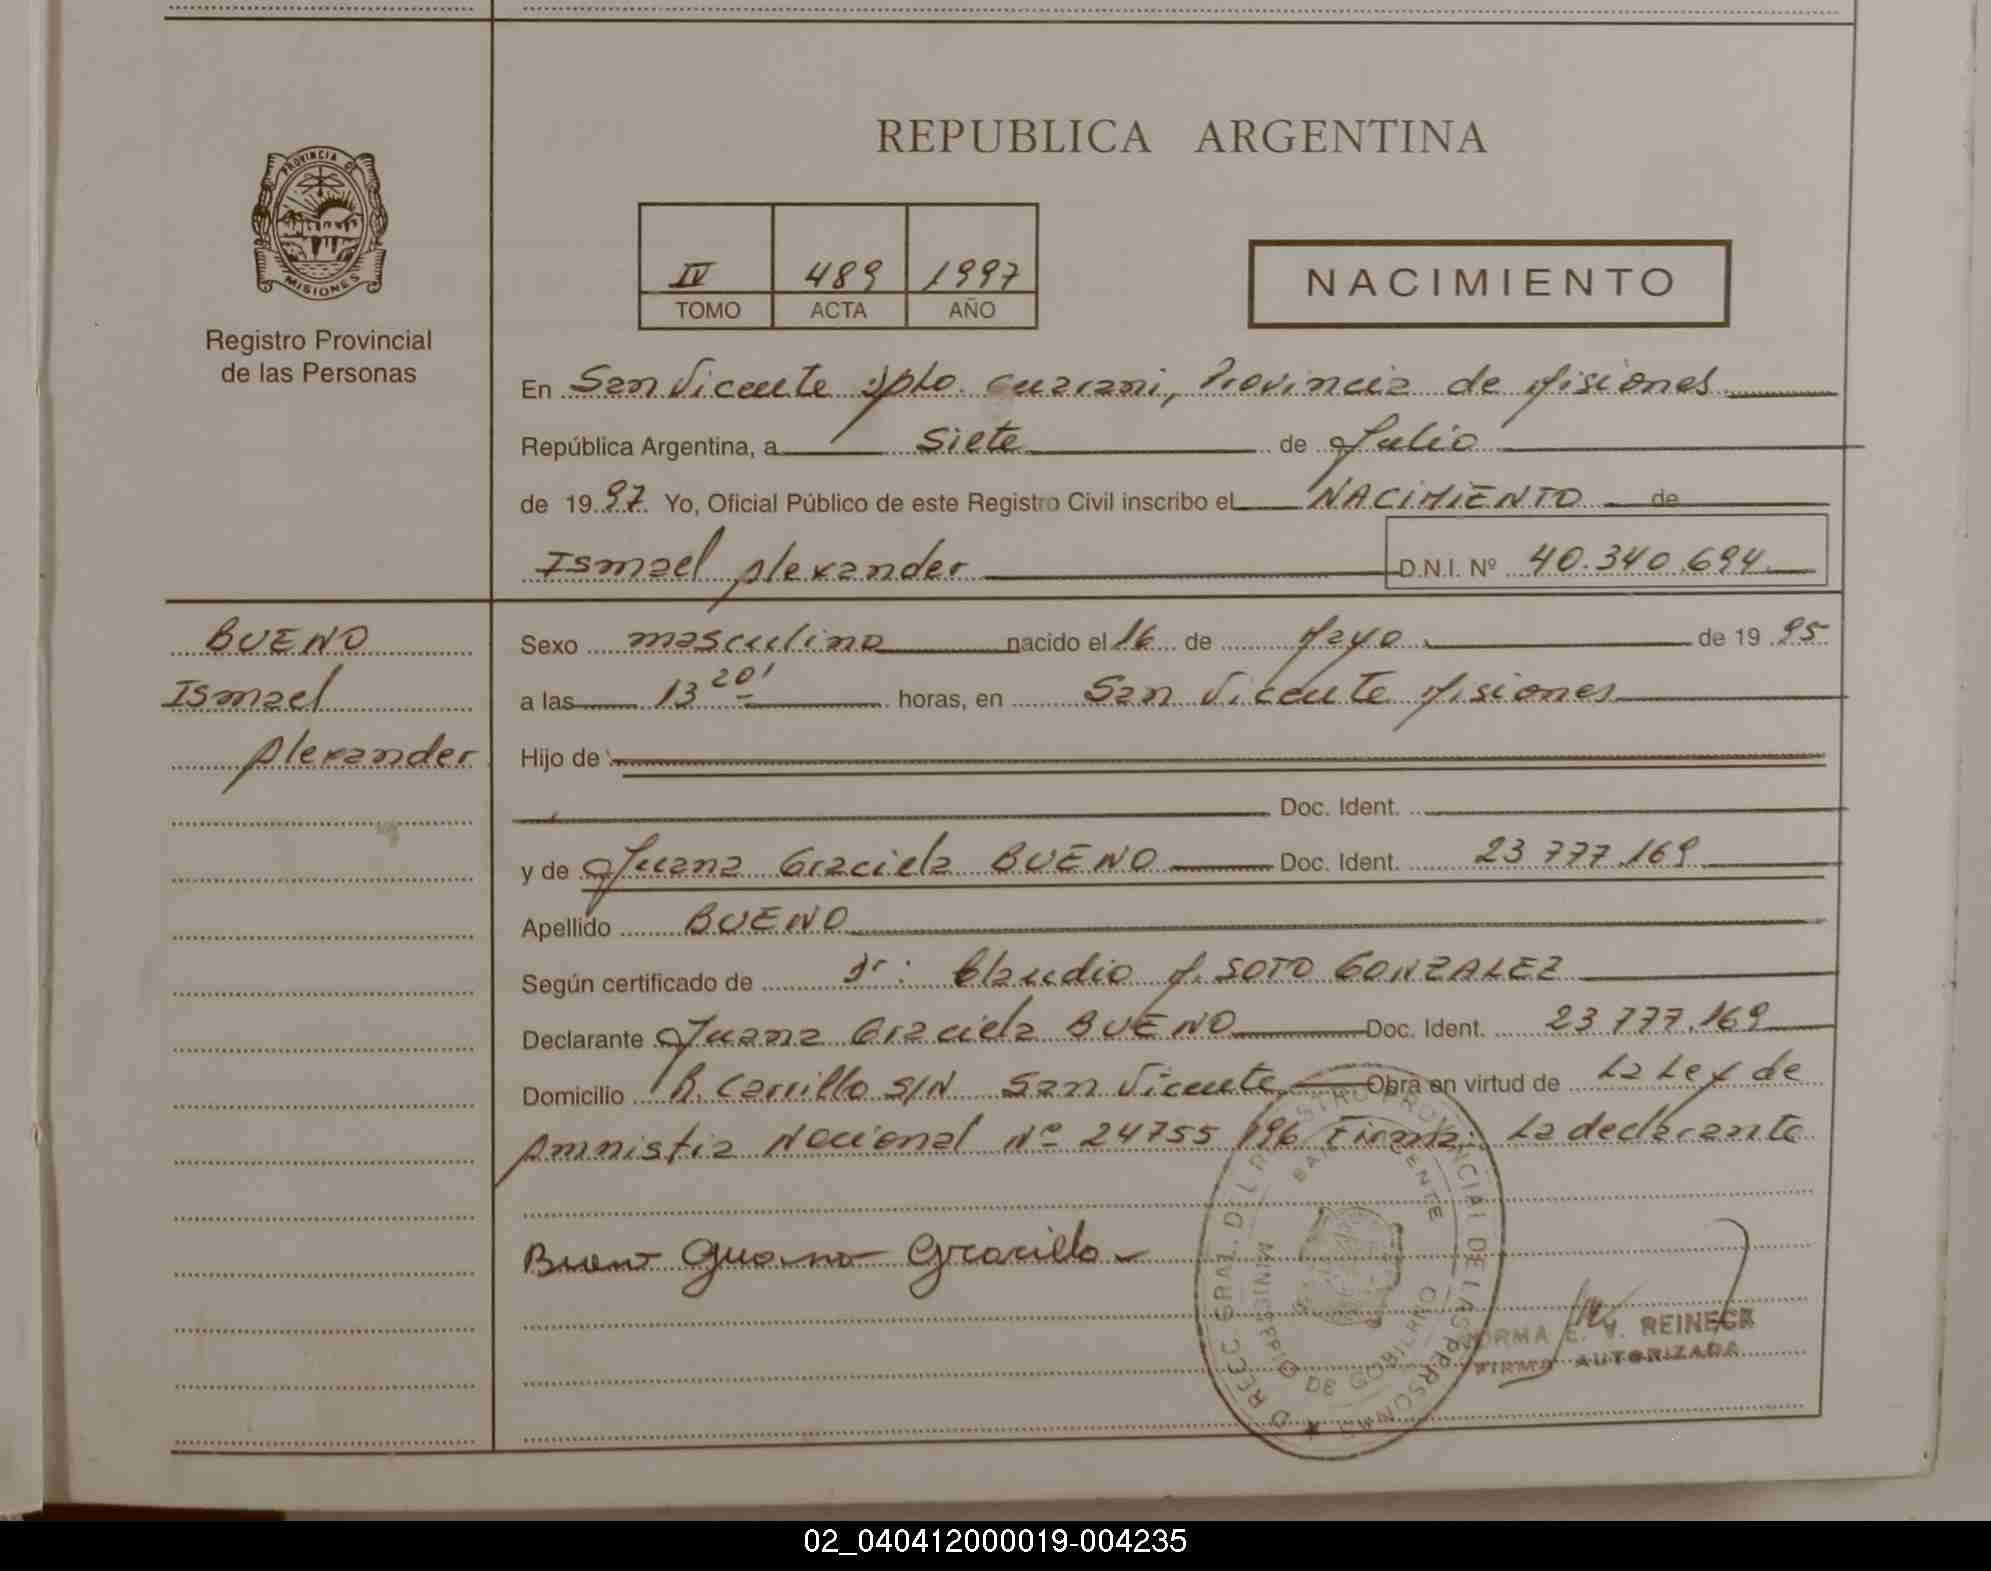 REPUBLICA ARGENTINA
PROVINCIA DE
MISIONES
Registro Provincial
de las Personas
IV 489 1997
TOMO ACTA AÑO
NACIMIENTO
En San Vicente Dpto. Guarani, Provincia de Misiones
República Argentina, a siete de Julio
de 1997. Yo, Oficial Público de este Registro Civil inscribo el NACIMIENTO de
Ismael Alexander D.N.I. Nº 40.340.694
BUENO
Ismael
Alexander
Sexo masculino nacido el 16 de Mayo de 1995
a las 13 20' horas, en San Vicente Misiones
Hijo de
Doc. Ident.
y de Juana Graciela BUENO Doc. Ident. 23 777.169
Apellido BUENO
Según certificado de Dr: Claudio M. SOTO GONZALEZ
Declarante Juana Graciela BUENO Doc. Ident. 23 777.169
Domicilio R. Carrillo S/N San Vicente Obra en virtud de La Ley de
Amnistia Nacional Nº 24755 /96 Firma: La declarante
Bueno Juana Graciela
SAN VICENTE
MINISTERIO DE GOBIERNO
REINECK
FIRMA AUTORIZADA
02_040412000019-004235